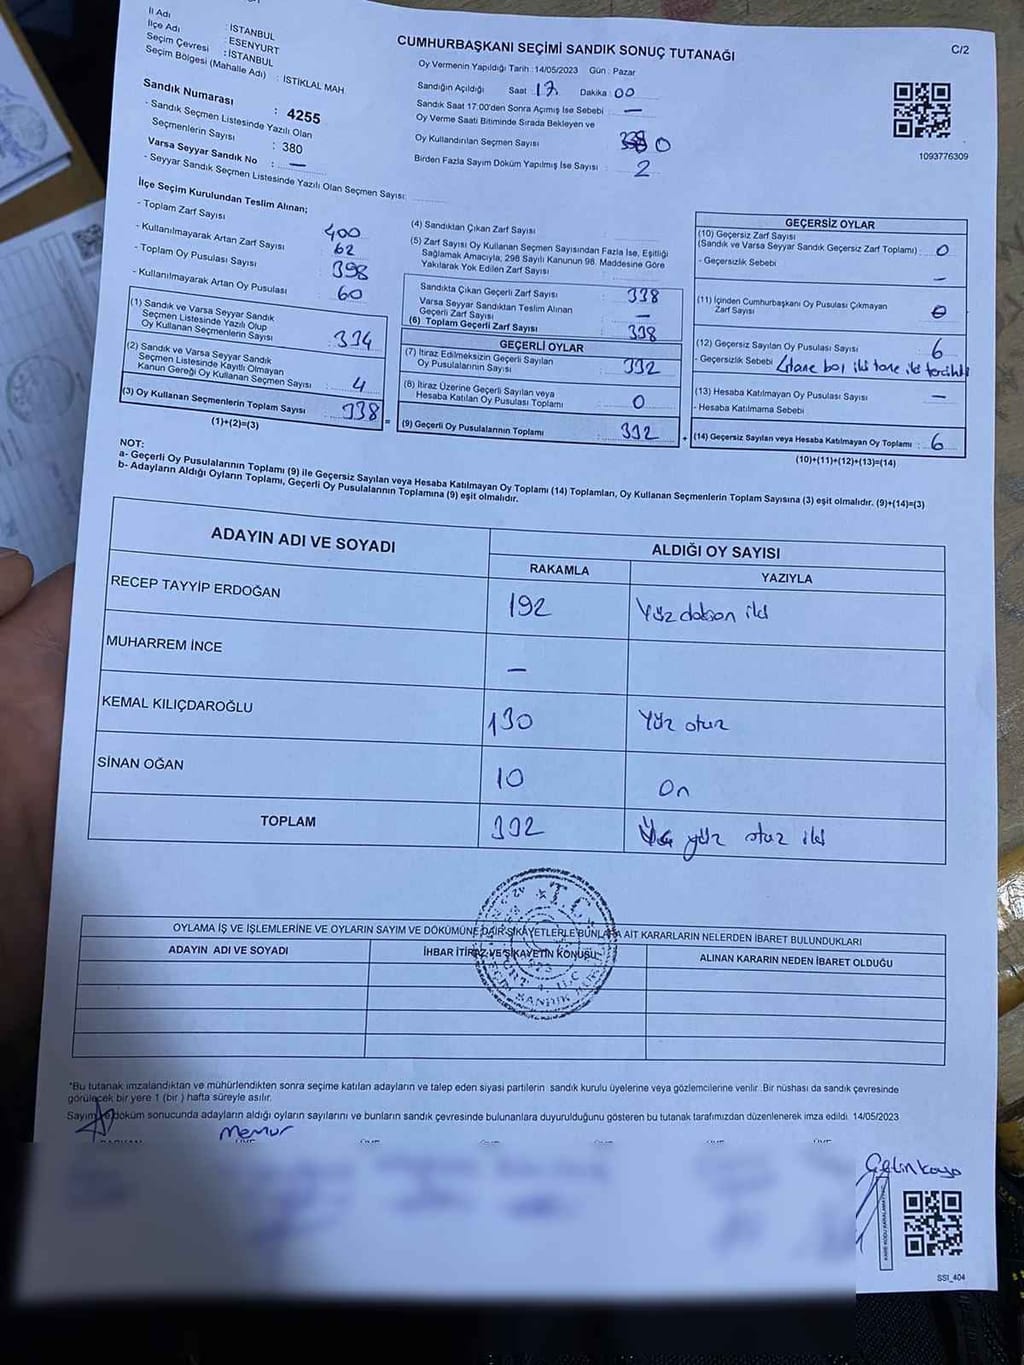 İl Adı : İSTANBUL
İlçe Adı : ESENYURT
Seçim Çevresi : İSTANBUL
Seçim Bölgesi (Mahalle Adı) : İSTİKLAL MAH.
Sandık Numarası : 4255
- Sandık Seçmen Listesinde Yazılı Olan
Seçmenlerin Sayısı : 380
Varsa Seyyar Sandık No : —
- Seyyar Sandık Seçmen Listesinde Yazılı Olan Seçmen Sayısı:
CUMHURBAŞKANI SEÇİMİ SANDIK SONUÇ TUTANAĞI
C/2
Oy Vermenin Yapıldığı Tarih : 14/05/2023 Gün : Pazar
Sandığın Açıldığı Saat : 17 Dakika : 00
Sandık Saat 17:00'den Sonra Açımış İse Sebebi : —
Oy Verme Saati Bitiminde Sırada Bekleyen ve
Oy Kullandırılan Seçmen Sayısı : 0
Birden Fazla Sayım Döküm Yapılmış İse Sayısı : 2
1093776309
İlçe Seçim Kurulundan Teslim Alınan;
- Toplam Zarf Sayısı : 400
- Kullanılmayarak Artan Zarf Sayısı : 62
- Toplam Oy Pusulası Sayısı : 398
- Kullanılmayarak Artan Oy Pusulası : 60
(1) Sandık ve Varsa Seyyar Sandık
Seçmen Listesinde Yazılı Olup
Oy Kullanan Seçmenlerin Sayısı : 334
(2) Sandık ve Varsa Seyyar Sandık
Seçmen Listesinde Kayıtlı Olmayan
Kanun Gereği Oy Kullanan Seçmen Sayısı : 4
(3) Oy Kullanan Seçmenlerin Toplam Sayısı : 338
(1)+(2)=(3)
(4) Sandıktan Çıkan Zarf Sayısı :
(5) Zarf Sayısı Oy Kullanan Seçmen Sayısından Fazla İse, Eşitliği
Sağlamak Amacıyla, 298 Sayılı Kanunun 98. Maddesine Göre
Yakılarak Yok Edilen Zarf Sayısı :
Sandıkta Çıkan Geçerli Zarf Sayısı : 338
Varsa Seyyar Sandıktan Teslim Alınan
Geçerli Zarf Sayısı : —
(6) Toplam Geçerli Zarf Sayısı : 338
GEÇERLİ OYLAR
(7) İtiraz Edilmeksizin Geçerli Sayılan
Oy Pusulalarının Sayısı : 332
(8) İtiraz Üzerine Geçerli Sayılan veya
Hesaba Katılan Oy Pusulası Toplamı : 0
(9) Geçerli Oy Pusulalarının Toplamı : 332
GEÇERSİZ OYLAR
(10) Geçersiz Zarf Sayısı
(Sandık ve Varsa Seyyar Sandık Geçersiz Zarf Toplamı) : 0
- Geçersizlik Sebebi —
(11) İçinden Cumhurbaşkanı Oy Pusulası Çıkmayan
Zarf Sayısı : 0
(12) Geçersiz Sayılan Oy Pusulası Sayısı : 6
- Geçersizlik Sebebi 4 tane boş iki tane iki tercihli
(13) Hesaba Katılmayan Oy Pusulası Sayısı : —
- Hesaba Katılmama Sebebi
(14) Geçersiz Sayılan veya Hesaba Katılmayan Oy Toplamı : 6
(10)+(11)+(12)+(13)=(14)
NOT:
a- Geçerli Oy Pusulalarının Toplamı (9) ile Geçersiz Sayılan veya Hesaba Katılmayan Oy Toplamı (14) Toplamları, Oy Kullanan Seçmenlerin Toplam Sayısına (3) eşit olmalıdır. (9)+(14)=(3)
b- Adayların Aldığı Oyların Toplamı, Geçerli Oy Pusulalarının Toplamına (9) eşit olmalıdır.
ADAYIN ADI VE SOYADI
ALDIĞI OY SAYISI
RAKAMLA YAZIYLA
RECEP TAYYİP ERDOĞAN 192 Yüz doksan iki
MUHARREM İNCE —
KEMAL KILIÇDAROĞLU 130 Yüz otuz
SİNAN OĞAN 10 On
TOPLAM 332 Üç yüz otuz iki
OYLAMA İŞ VE İŞLEMLERİNE VE OYLARIN SAYIM VE DÖKÜMÜNE DAİR ŞİKAYETLERLE BUNLARA AİT KARARLARIN NELERDEN İBARET BULUNDUKLARI
ADAYIN ADI VE SOYADI İHBAR İTİRAZ VE ŞİKAYETİN KONUSU ALINAN KARARIN NEDEN İBARET OLDUĞU
T.C.
*Bu tutanak imzalandıktan ve mühürlendikten sonra seçime katılan adayların ve talep eden siyasi partilerin sandık kurulu üyelerine veya gözlemcilerine verilir. Bir nüshası da sandık çevresinde
görülecek bir yere 1 (bir ) hafta süreyle asılır.
Sayım ve döküm sonucunda adayların aldığı oyların sayılarını ve bunların sandık çevresinde bulunanlara duyurulduğunu gösteren bu tutanak tarafımızdan düzenlenerek imza edildi. 14/05/2023
Memur
Çetinkaya
SSI_404